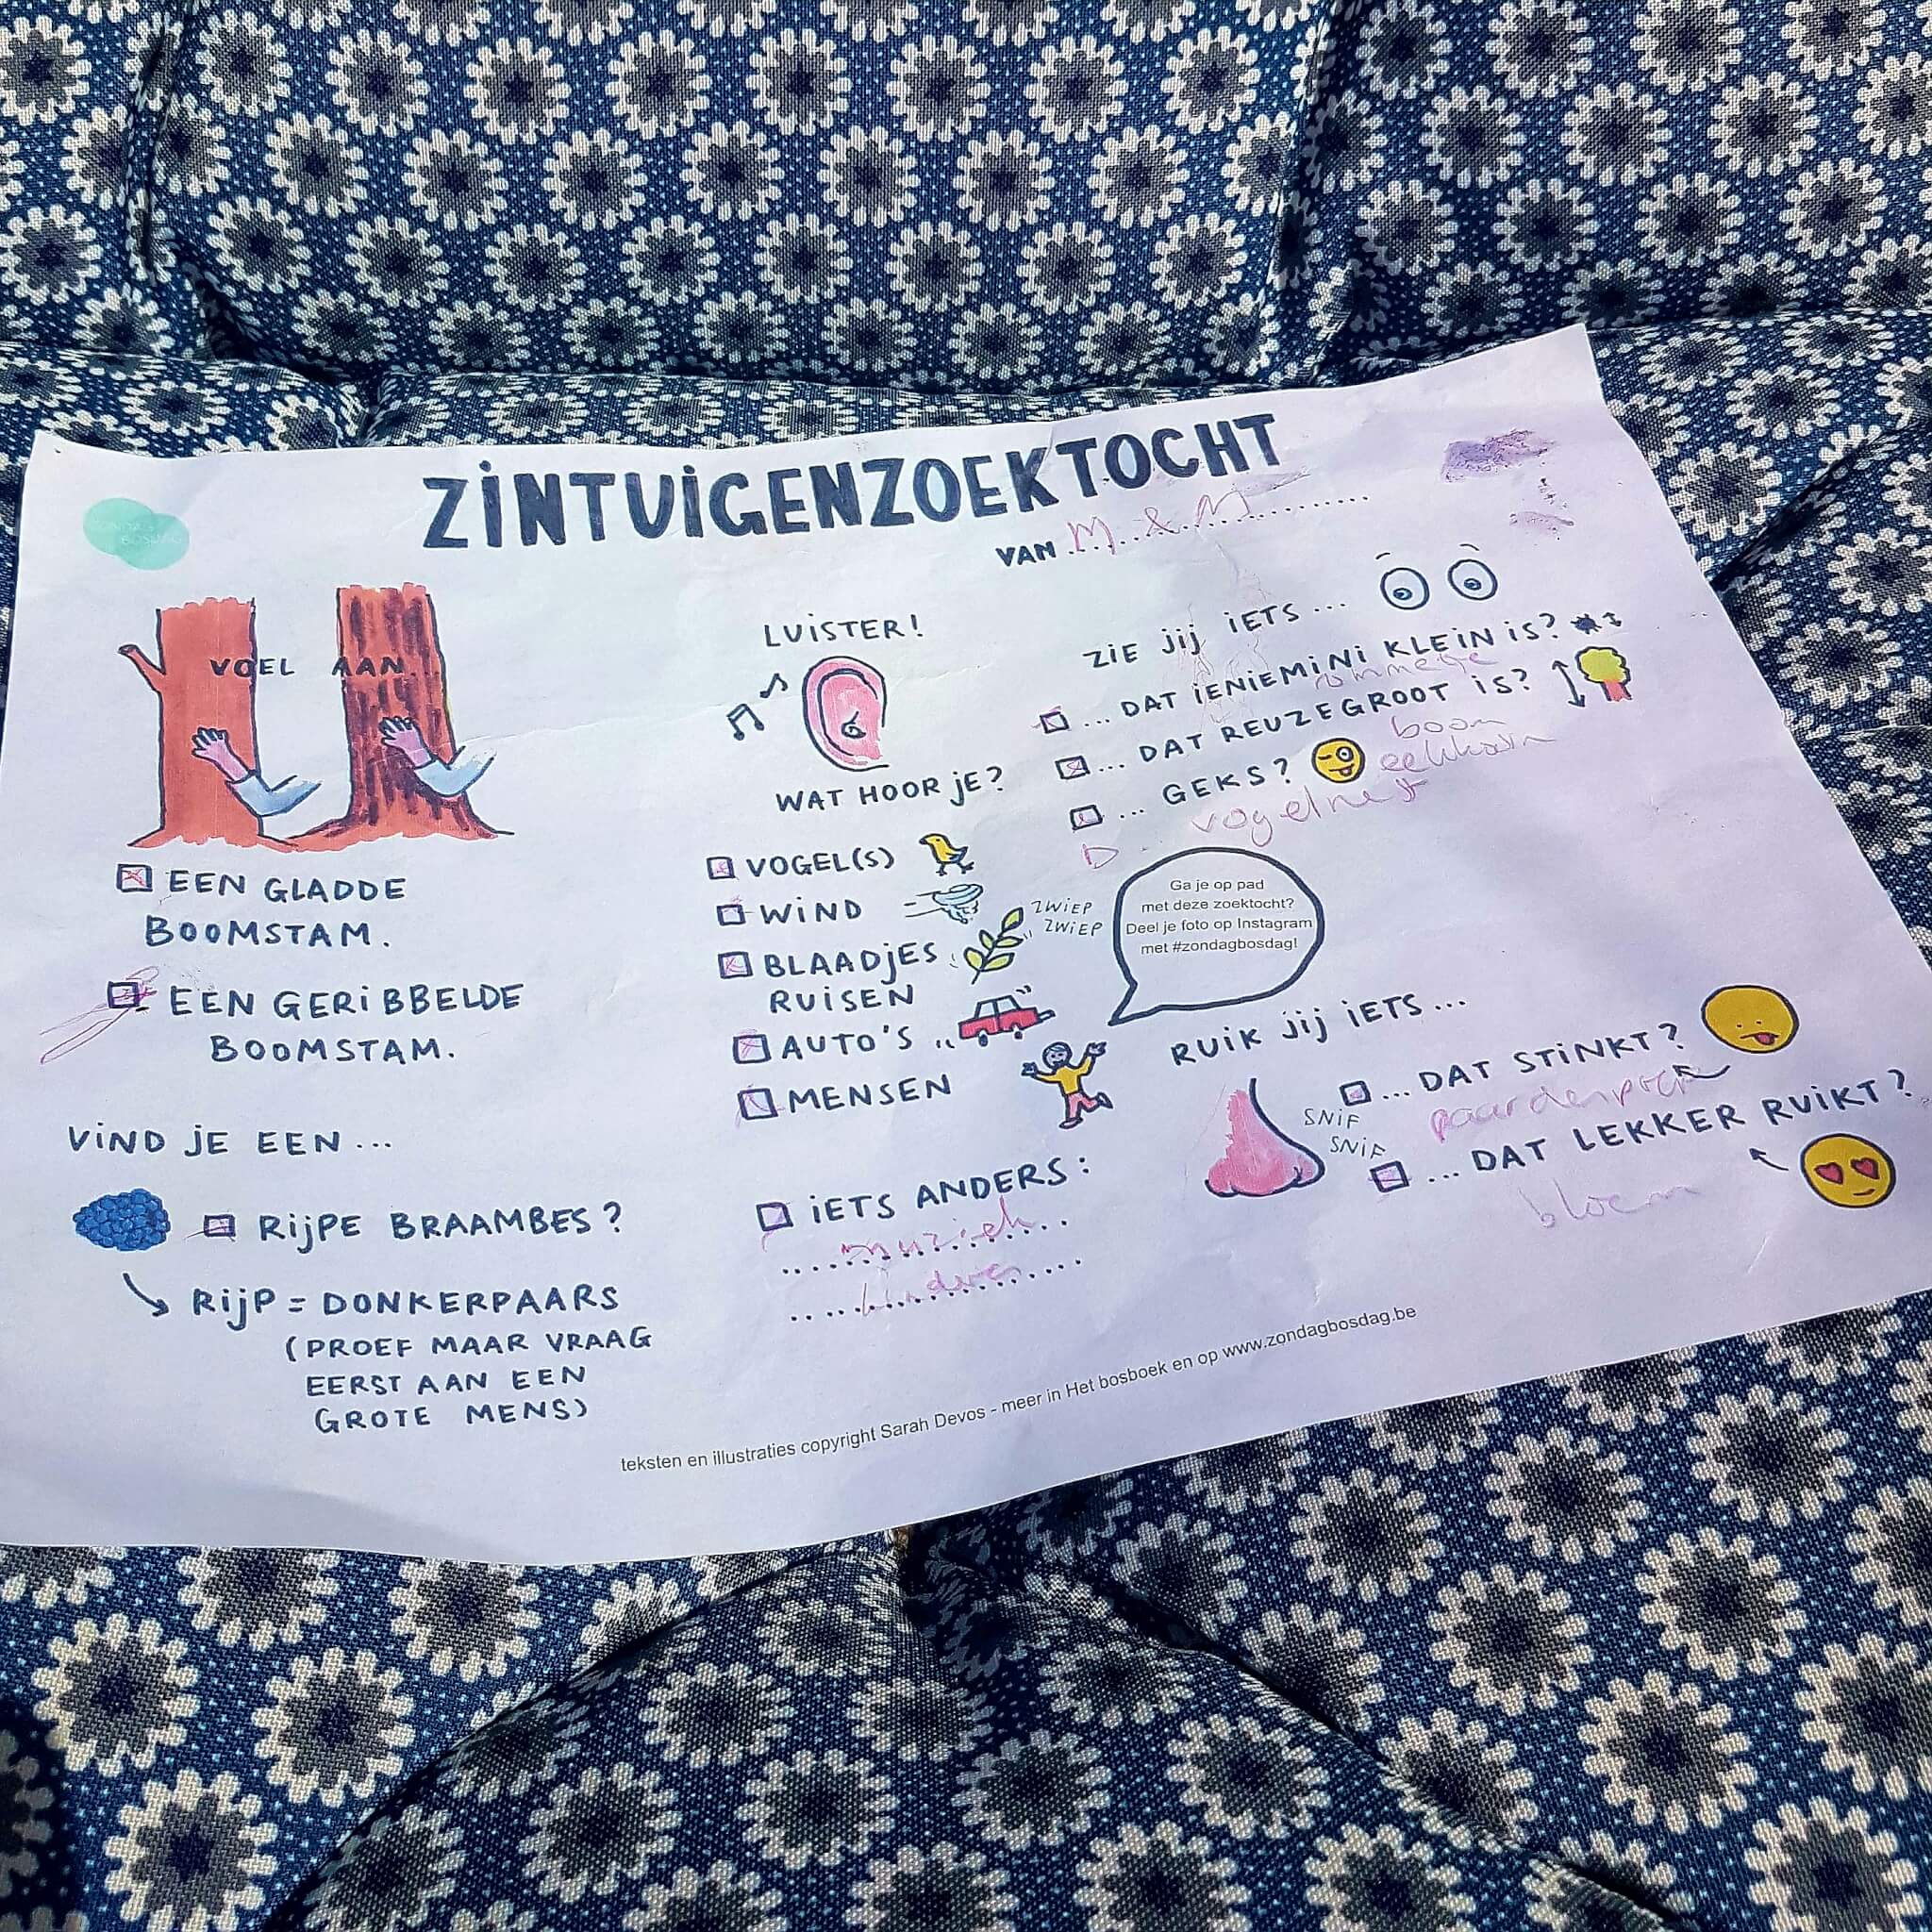 ZINTUIGENZOEKTOCHT
VAN M & M
ZONDAG
BOSDAG
VOEL AAN
EEN GLADDE
BOOMSTAM.
EEN GERIBBELDE
BOOMSTAM.
VIND JE EEN...
RIJPE BRAAMBES?
RIJP = DONKERPAARS
(PROEF MAAR VRAAG
EERST AAN EEN
GROTE MENS)
LUISTER!
WAT HOOR JE?
VOGEL(S)
WIND
BLAADJES
RUISEN
ZWIEP
ZWIEP
AUTO'S
MENSEN
IETS ANDERS:
muziek
kinderen
ZIE JIJ IETS...
... DAT IENIEMINI KLEIN IS?
... DAT REUZEGROOT IS?
boom
... GEKS?
eekhoorn
vogelnest
Ga je op pad
met deze zoektocht?
Deel je foto op Instagram
met #zondagbosdag!
RUIK JIJ IETS...
... DAT STINKT?
SNIF
SNIF
... DAT LEKKER RUIKT?
bloem
teksten en illustraties copyright Sarah Devos - meer in Het bosboek en op www.zondagbosdag.be